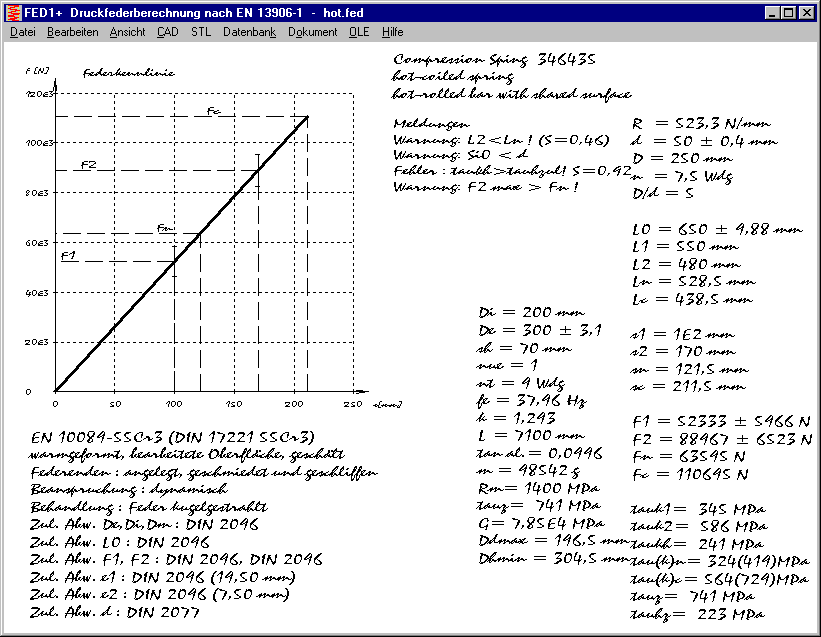 FED1+ Druckfederberechnung nach EN 13906-1 - hot.fed
Datei Bearbeiten Ansicht CAD STL Datenbank Dokument OLE Hilfe
F [N]
Federkennlinie
120e3
100e3
80e3
60e3
40e3
20e3
0
Fc
F2
Fn
F1
0 50 100 150 200 250 s[mm]
Compression Sping 346435
hot-coiled spring
hot-rolled bar with shaved surface
Meldungen
Warnung: L2<Ln ! (S=0,46)
Warnung: Si0 < d
Fehler : taukh>tauhzul! S=0,92
Warnung: F2 max > Fn !
R = 523,3 N/mm
d = 50 ± 0,4 mm
D = 250 mm
n = 7,5 Wdg
D/d = 5
L0 = 650 ± 9,88 mm
L1 = 550 mm
L2 = 480 mm
Ln = 528,5 mm
Lc = 438,5 mm
s1 = 1E2 mm
s2 = 170 mm
sn = 121,5 mm
sc = 211,5 mm
F1 = 52333 ± 5966 N
F2 = 88967 ± 6523 N
Fn = 63595 N
Fc = 110695 N
tauk1= 345 MPa
tauk2= 586 MPa
taukh= 241 MPa
tau(k)n= 324(419)MPa
tau(k)c= 564(729)MPa
tauz= 741 MPa
tauhz= 223 MPa
Di = 200 mm
De = 300 ± 3,1
sh = 70 mm
nue = 1
nt = 9 Wdg
fe = 37,96 Hz
k = 1,293
L = 7100 mm
tan al. = 0,0996
m = 98542 g
Rm= 1400 MPa
tauz= 741 MPa
G= 7,85E4 MPa
Ddmax = 196,5 mm
Dhmin = 304,5 mm
EN 10089-55Cr3 (DIN 17221 55Cr3)
warmgeformt, bearbeitete Oberfläche, geschält
Federenden : angelegt, geschmiedet und geschliffen
Beanspruchung : dynamisch
Behandlung : Feder kugelgestrahlt
Zul. Abw. De,Di,Dm : DIN 2096
Zul. Abw. L0 : DIN 2096
Zul. Abw. F1, F2 : DIN 2096, DIN 2096
Zul. Abw. e1 : DIN 2096 (19,50 mm)
Zul. Abw. e2 : DIN 2096 (7,50 mm)
Zul. Abw. d : DIN 2077